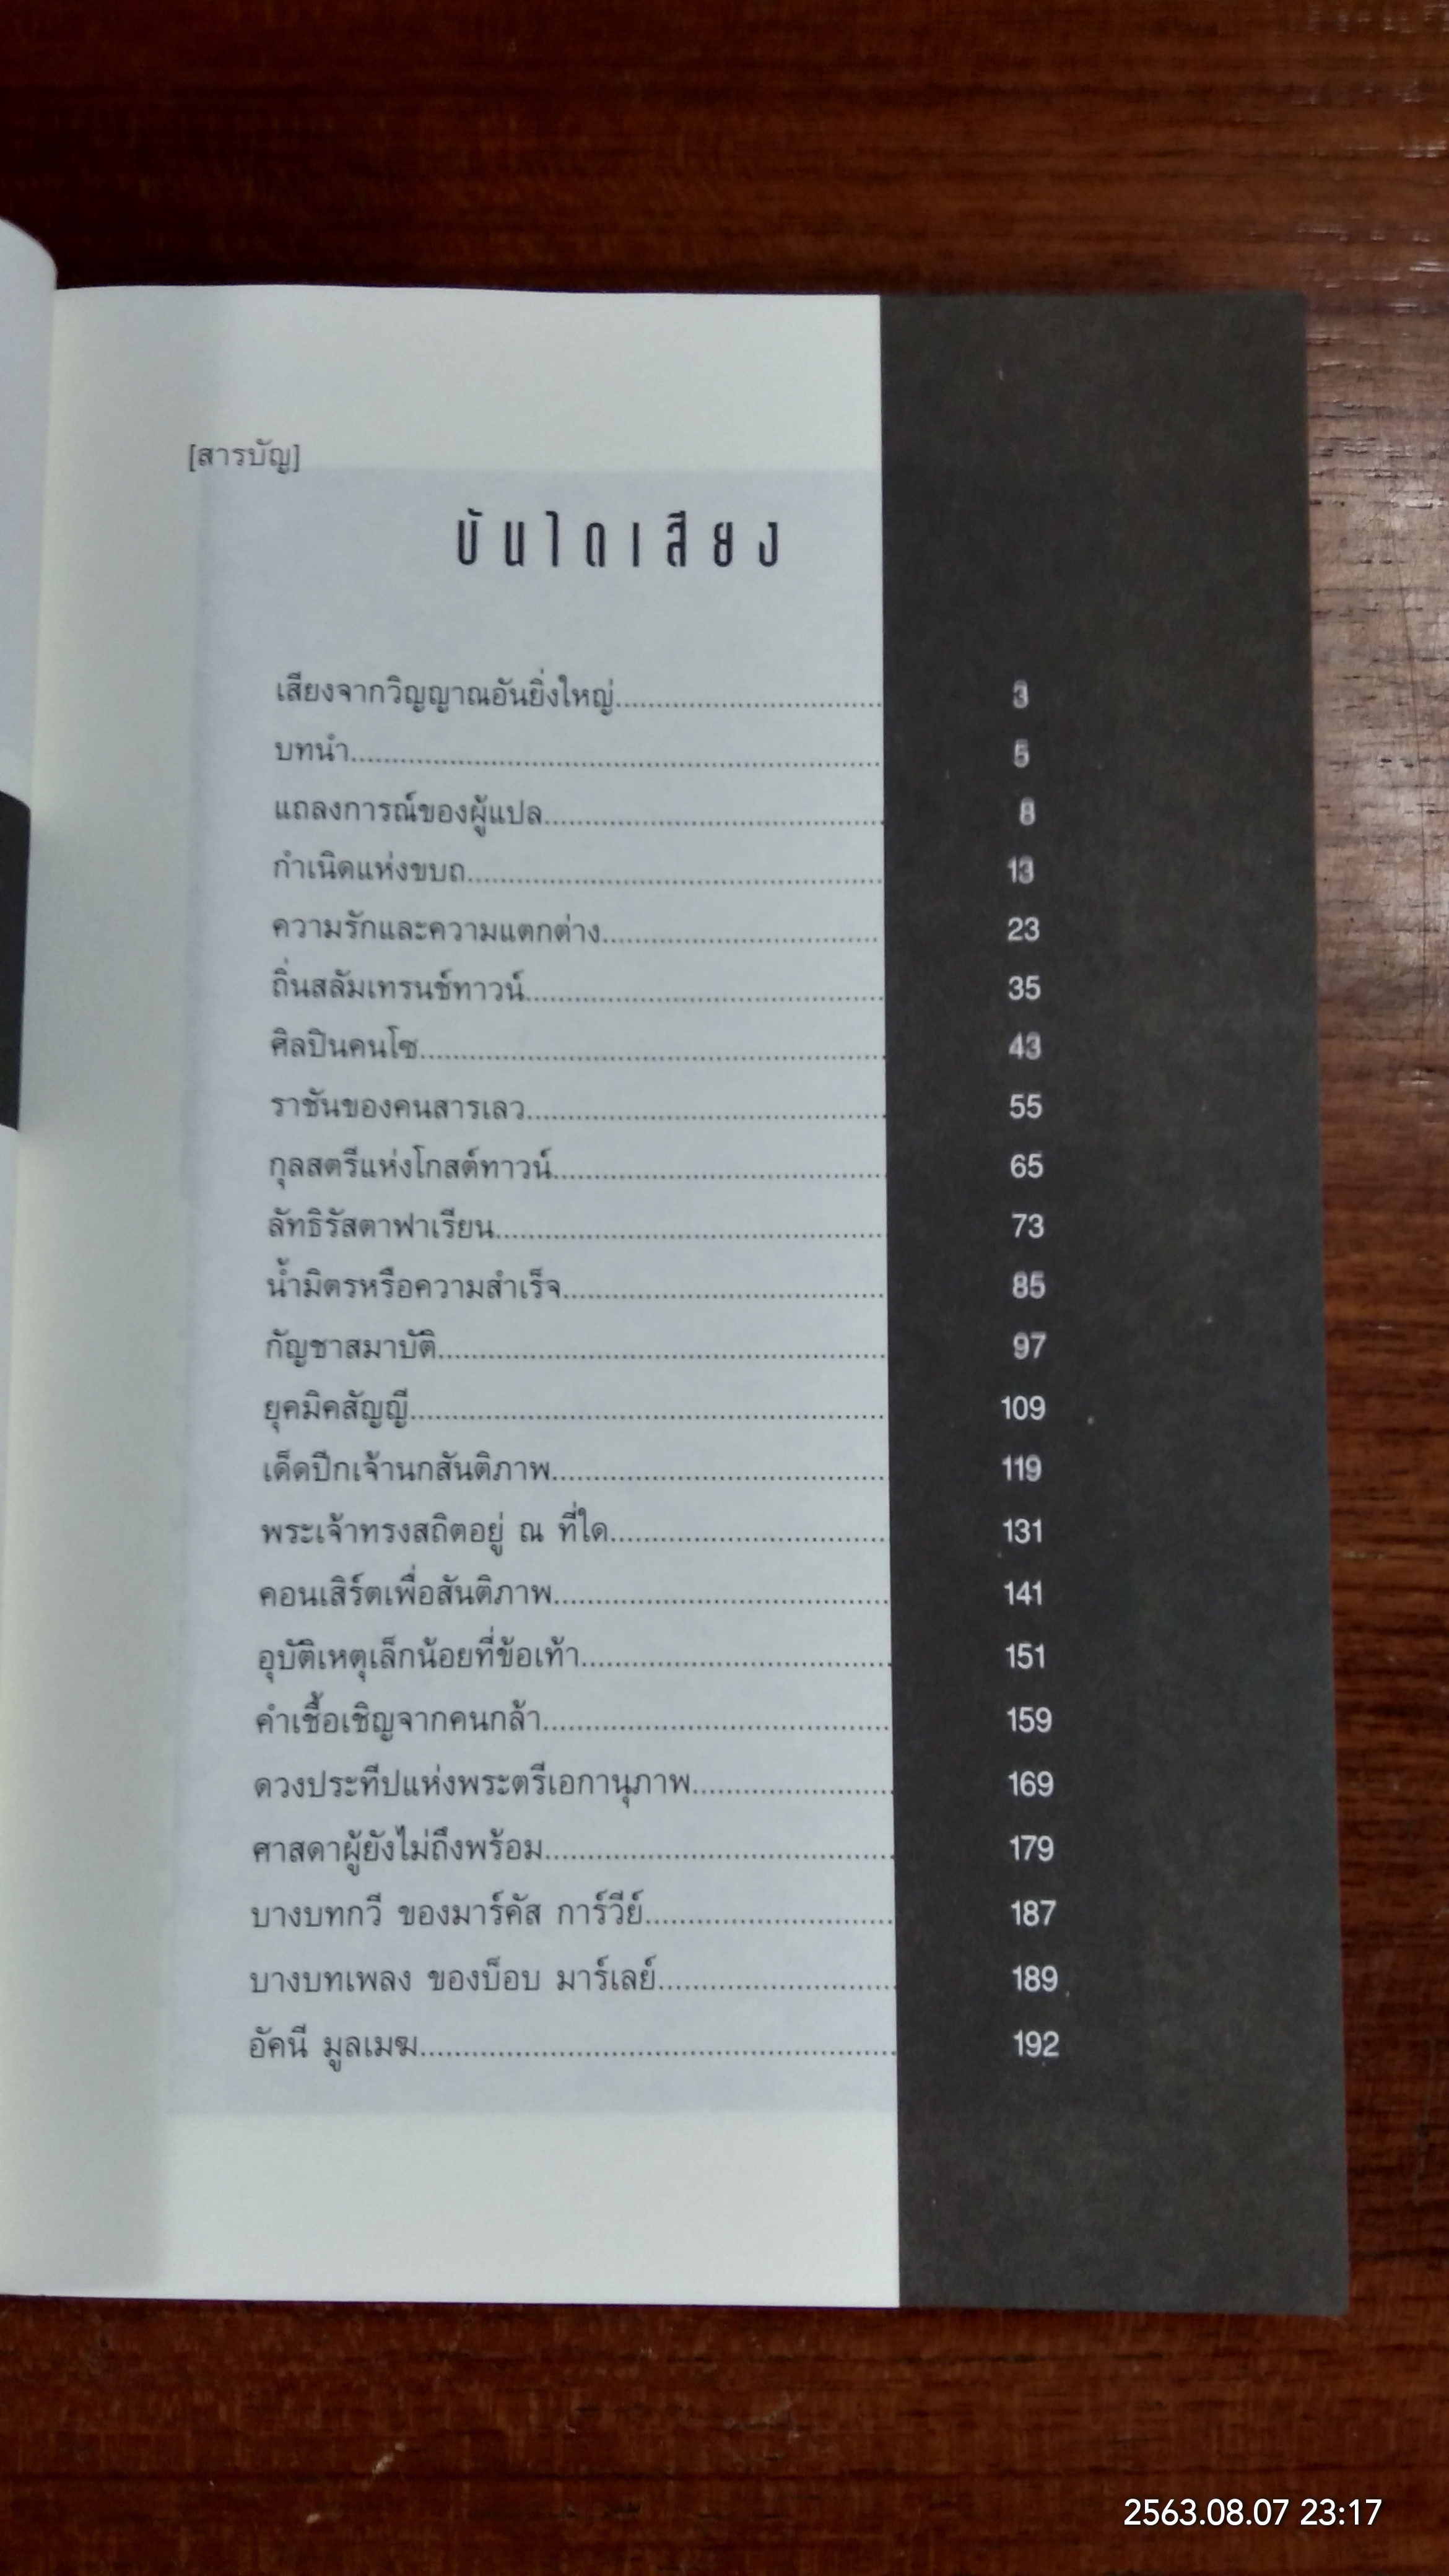 [สารบัญ]
บันไดเสียง
เสียงจากวิญญาณอันยิ่งใหญ่........................................ 3
บทนำ........................................ 5
แถลงการณ์ของผู้แปล........................................ 8
กำเนิดแห่งขบถ........................................ 13
ความรักและความแตกต่าง........................................ 23
ถิ่นสลัมเทรนช์ทาวน์........................................ 35
ศิลปินคนโซ........................................ 43
ราชันของคนสารเลว........................................ 55
กุลสตรีแห่งโกสต์ทาวน์........................................ 65
ลัทธิรัสตาฟาเรียน........................................ 73
น้ำมิตรหรือความสำเร็จ........................................ 85
กัญชาสมาบัติ........................................ 97
ยุคมิคสัญญี........................................ 109
เด็ดปีกเจ้านกสันติภาพ........................................ 119
พระเจ้าทรงสถิตอยู่ ณ ที่ใด........................................ 131
คอนเสิร์ตเพื่อสันติภาพ........................................ 141
อุบัติเหตุเล็กน้อยที่ข้อเท้า........................................ 151
คำเชื้อเชิญจากคนกล้า........................................ 159
ดวงประทีปแห่งพระตรีเอกานุภาพ........................................ 169
ศาสดาผู้ยังไม่ถึงพร้อม........................................ 179
บางบทกวี ของมาร์คัส การ์วีย์........................................ 187
บางบทเพลง ของบ็อบ มาร์เลย์........................................ 189
อัคนี มูลเมฆ........................................ 192
2563.08.07 23:17